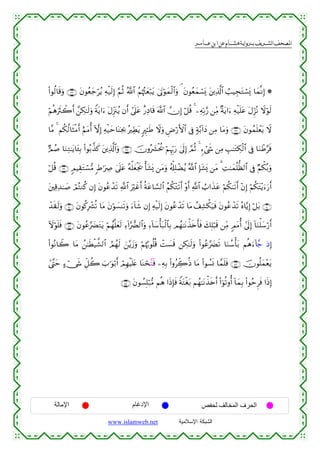 المصحف الشريف برواية هشام عن ابن عامر
۞ إِنَّمَا يَسْتَجِيبُ ٱلَّذِينَ يَسْمَعُونَۘ وَٱلْمَوْتَىٰ يَبْعَثُهُمُ ٱللَّهُ ثُمَّ إِلَيْهِ يُرْجَعُونَ ۝ وَقَالُوا۟
لَوْلَا نُزِّلَ عَلَيْهِ ءَايَةٌ مِّن رَّبِّهِۦۚ قُلْ إِنَّ ٱللَّهَ قَادِرٌ عَلَىٰٓ أَن يُنَزِّلَ ءَايَةً وَلَـٰكِنَّ أَكْثَرَهُمْ
لَا يَعْلَمُونَ ۝ وَمَا مِن دَآبَّةٍ فِى ٱلْأَرْضِ وَلَا طَـٰٓئِرٍ يَطِيرُ بِجَنَاحَيْهِ إِلَّآ أُمَمٌ أَمْثَالُكُمۚ مَّا
فَرَّطْنَا فِى ٱلْكِتَـٰبِ مِن شَىْءٍۚ ثُمَّ إِلَىٰ رَبِّهِمْ يُحْشَرُونَ ۝ وَٱلَّذِينَ كَذَّبُوا۟ بِـَٔايَـٰتِنَا صُمٌّ
وَبُكْمٌ فِى ٱلظُّلُمَـٰتِۗ مَن يَشَإِ ٱللَّهُ يُضْلِلْهُ وَمَن يَشَأْ يَجْعَلْهُ عَلَىٰ صِرَٰطٍ مُّسْتَقِيمٍ ۝ قُلْ
أَرَءَيْتَكُمْ إِنْ أَتَىٰكُمْ عَذَابُ ٱللَّهِ أَوْ أَتَتْكُمُ ٱلسَّاعَةُ أَغَيْرَ ٱللَّهِ تَدْعُونَ إِن كُنتُمْ صَـٰدِقِينَ
۝ بَلْ إِيَّاهُ تَدْعُونَ فَيَكْشِفُ مَا تَدْعُونَ إِلَيْهِ إِن شَآءَ وَتَنسَوْنَ مَا تُشْرِكُونَ ۝ وَلَقَدْ
أَرْسَلْنَآ إِلَىٰٓ أُمَمٍ مِّن قَبْلِكَ فَأَخَذْنَـٰهُم بِٱلْبَأْسَآءِ وَٱلضَّرَّآءِ لَعَلَّهُمْ يَتَضَرَّعُونَ ۝ فَلَوْلَآ
إِذْ جَآءَهُم بَأْسُنَا تَضَرَّعُوا۟ وَلَـٰكِن قَسَتْ قُلُوبُهُمْ وَزَيَّنَ لَهُمُ ٱلشَّيْطَـٰنُ مَا كَانُوا۟
يَعْمَلُونَ ۝ فَلَمَّا نَسُوا۟ مَا ذُكِّرُوا۟ بِهِۦ فَتَّحْنَا عَلَيْهِمْ أَبْوَٰبَ كُلِّ شَىْءٍ حَتَّىٰٓ
إِذَا فَرِحُوا۟ بِمَآ أُوتُوٓا۟ أَخَذْنَـٰهُم بَغْتَةً فَإِذَا هُم مُّبْلِسُونَ ۝
الحرف المخالف لحفص الإدغام الإمالة
الشبكة الإسلامية www.islamweb.net